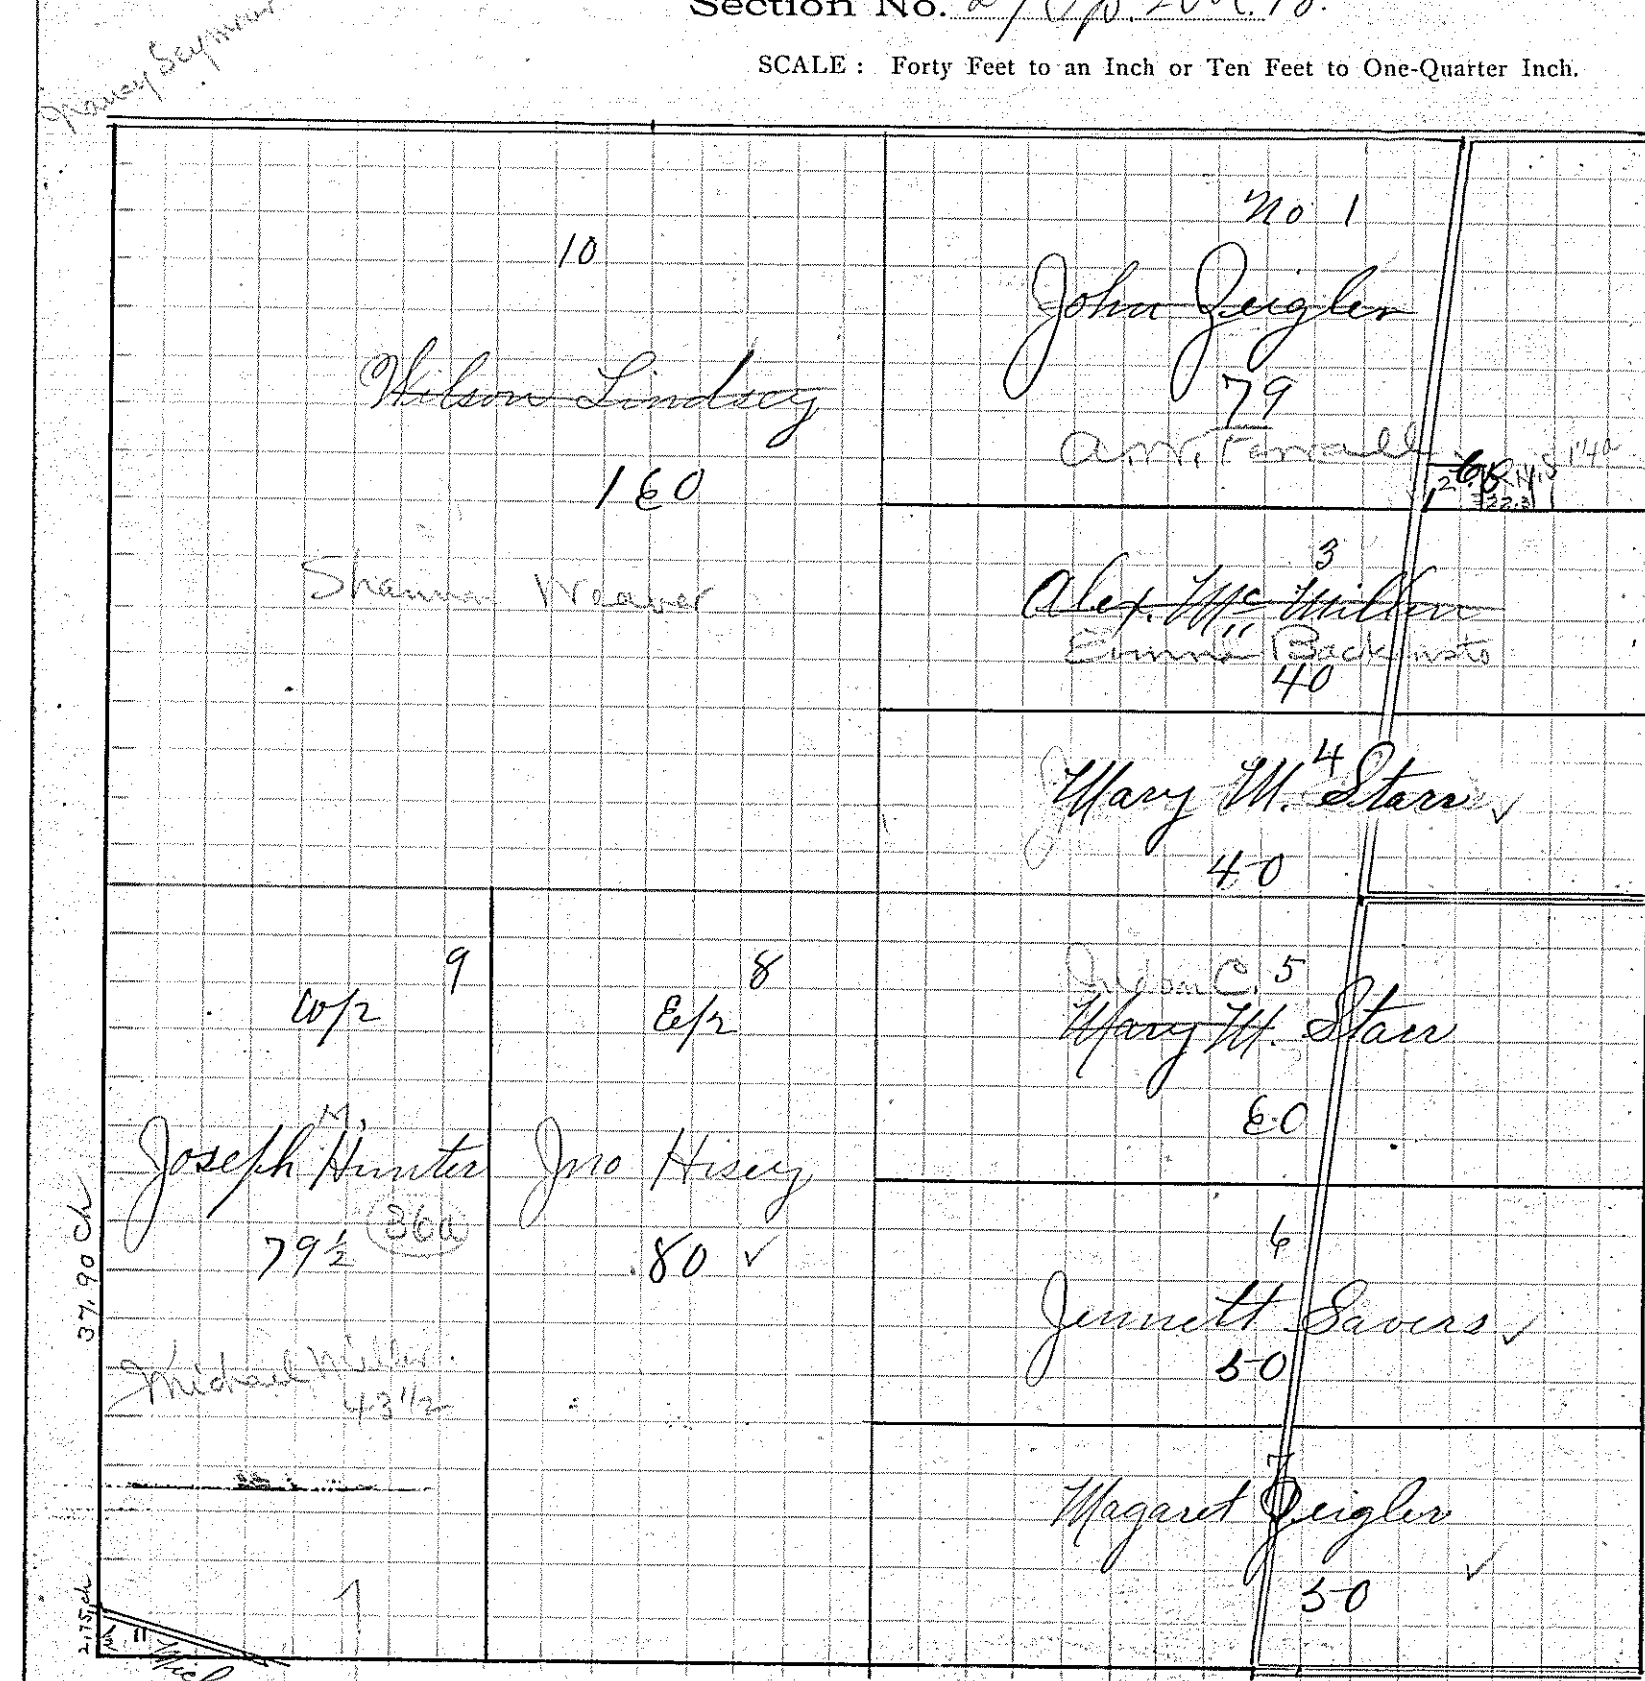 Section No.
SCALE : Forty Feet to an Inch or Ten Feet to One-Quarter Inch.
Nancy Seymour
10
Wilson Lindsey
160
Shannon Weaver
No 1
John Zeigler
79
3
Alex. Mc Millen
Backinsto
40
4
Mary M. Starr ✓
40
9
W/2
M.
Joseph Hunter
79 1/2
36a
Michael Miller.
43 1/2
8
E/2
Jno Hisey
80 ✓
C. 5
Mary M. Starr
60
6
Jennett Savers ✓
50
7
Magaret Zeigler
50 ✓
37.90 ch
2.15 ch